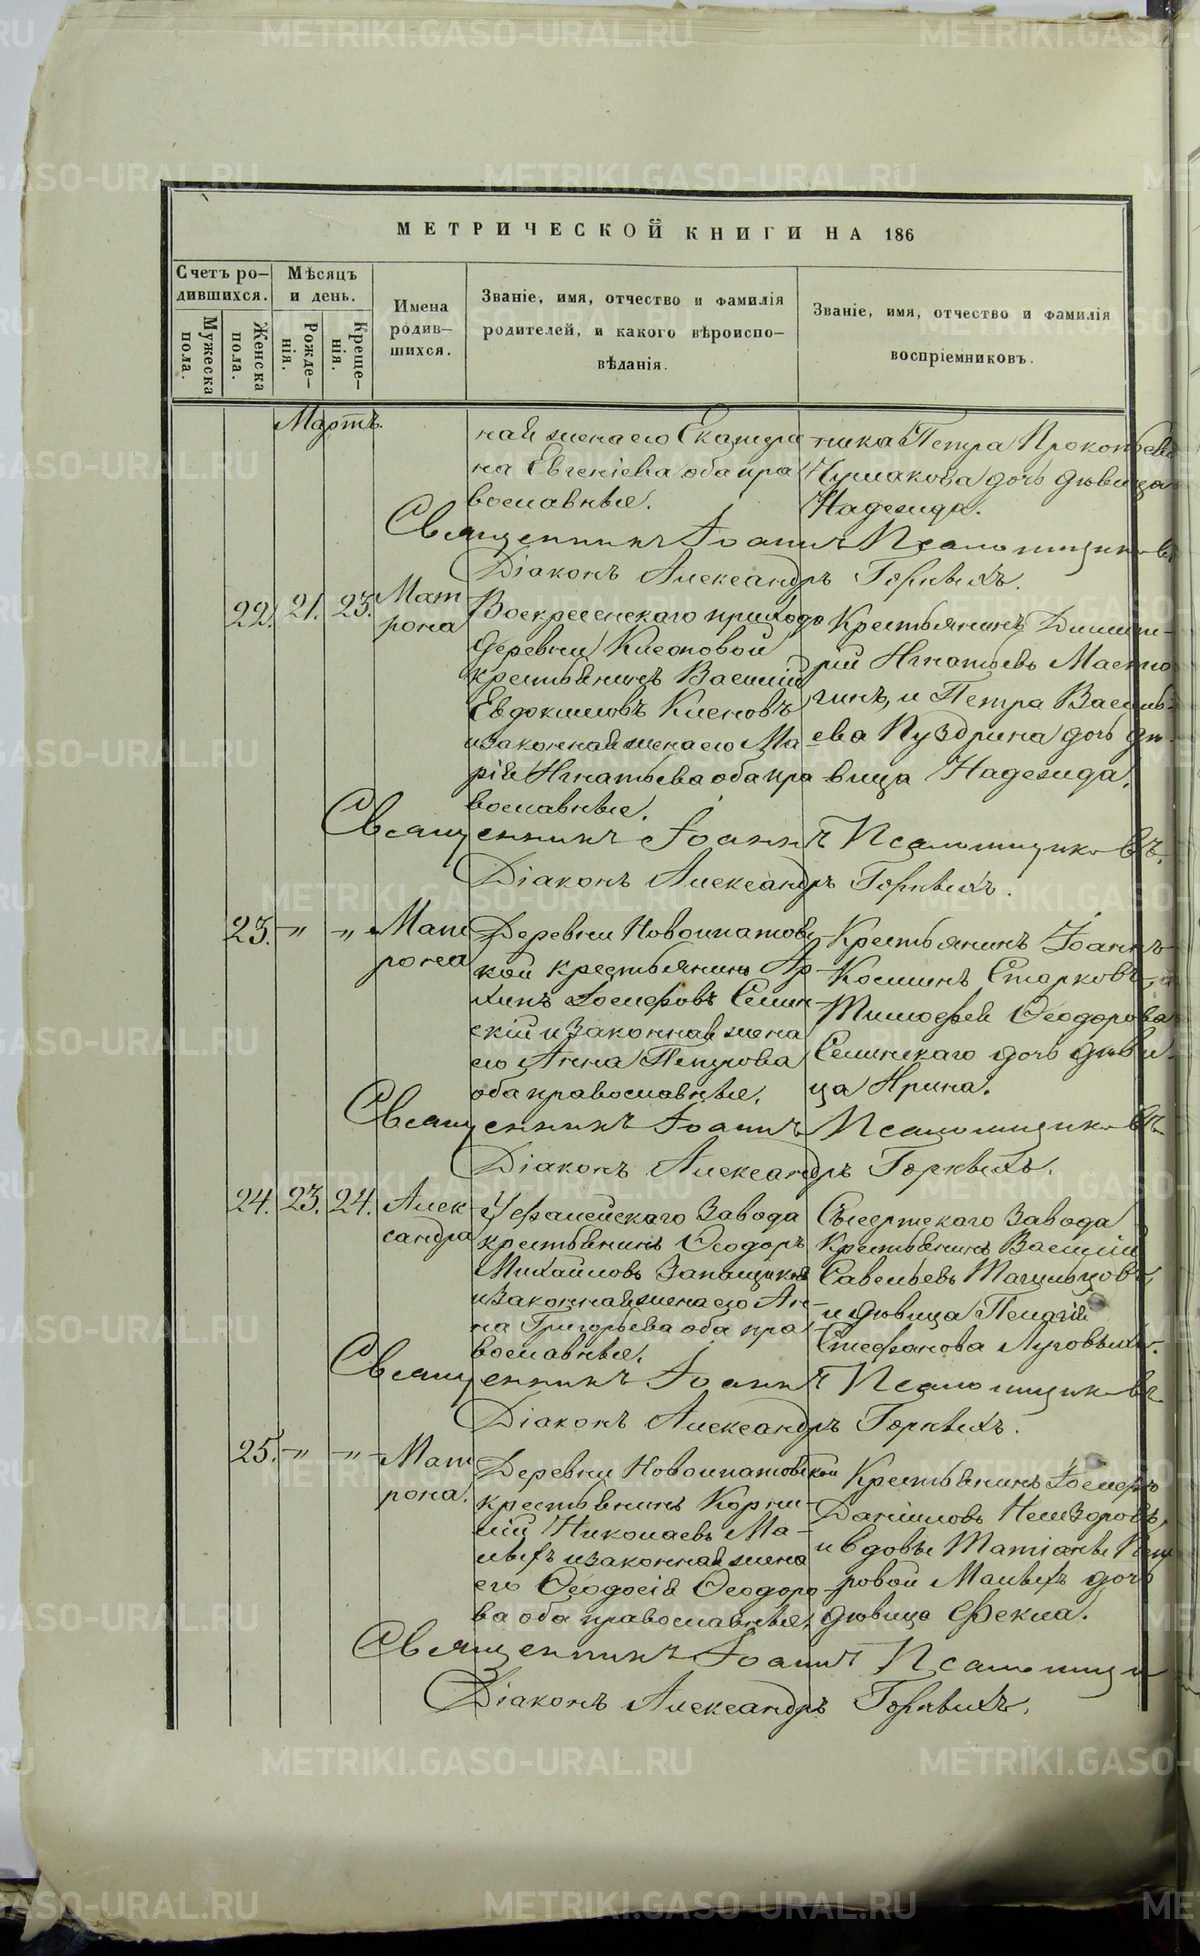 МЕТРИЧЕСКОЙ КНИГИ НА 186
Счетъ ро-
дившихся.
Мѣсяцъ
и день.
Мужеска
пола.
Женска
пола.
Рожде-
нія.
Креще-
нія.
Имена
родив-
шихся.
Званіе, имя, отчество и фамилія
родителей, и какого вѣроиспо-
вѣданія.
Званіе, имя, отчество и фамилія
воспріемниковъ.
Мартъ.
ная жена его Екатери
на Евгеніева оба пра
вославные.
ника Петра Прокопьева
Чумакова дочь дѣвица
Надежда.
Священникъ Іоаннъ Псаломщиковъ
Діаконъ Александръ Горныхъ.
22. 21. 23. Мат
рона
Воскресенскаго прихода
деревни Кленовой
крестьянинъ Василій
Евдокимовъ Кленовъ
и законная жена его Ма
рія Игнатьева оба пра
вославные.
Крестьянинъ Димит-
рій Игнатьевъ
и Петра Василь-
ева Пуздрина дочь дѣ-
вица Надежда.
Священникъ Іоаннъ Псаломщиковъ.
Діаконъ Александръ Горныхъ.
23. -"- -"- Мат
рона
Деревни Новоипатовс
кой крестьянинъ Ар
хипъ Іосифовъ Семин
скій и законная жена
его Анна Петрова
оба православные.
Крестьянинъ Іоаннъ
Косминъ Старковъ, и
Тимофея Ѳеодорова
Семинскаго дочь дѣви
ца Ирина.
Священникъ Іоаннъ Псаломщиковъ
Діаконъ Александръ Горныхъ.
24. 23. 24. Алек
сандра
Уфалейскаго Завода
крестьянинъ Ѳеодоръ
Михайловъ Запащиковъ
и законная жена его Ан-
на Григорьева оба пра
вославные.
Сысертскаго Завода
крестьянинъ Василій
Савельевъ Тагильцовъ,
и дѣвица Пелагія
Стефанова Луговыхъ.
Священникъ Іоаннъ Псаломщиковъ
Діаконъ Александръ Горныхъ.
25. -"- -"- Мат
рона.
Деревни Новоипатовской
крестьянинъ Корни-
лій Николаевъ Ма-
лыхъ и законная жена
его Ѳеодосія Ѳеодоро
ва оба православные,
Крестьянинъ Іосифъ
Даніиловъ
и вдовы Татіаны Пет
ровой Малыхъ дочь
дѣвица Фекла.
Священникъ Іоаннъ Псаломщи
Діаконъ Александръ Горныхъ.